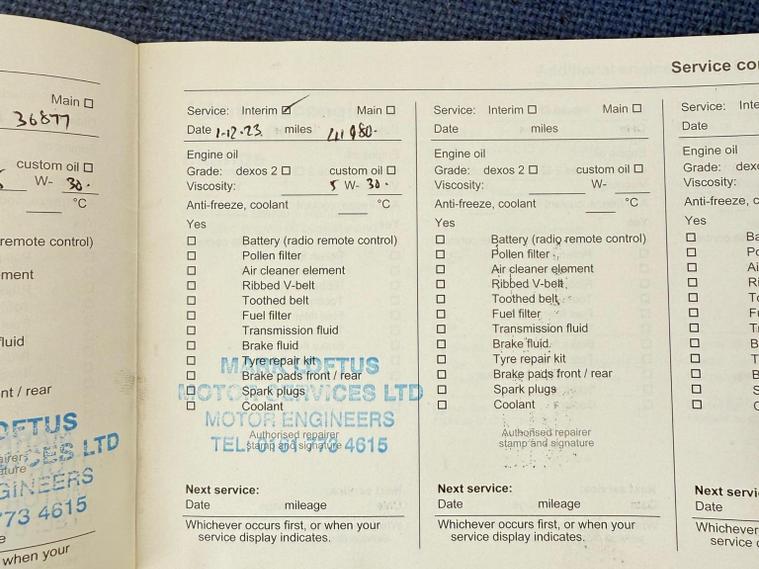 Main
36877
custom oil
W- 30.
°C
remote control)
ment
fluid
nt / rear
LOFTUS
CES LTD
GINEERS
773 4615
when your
Service co
Service: Interim Main
Date 1-12-23 miles
Engine oil
Grade: dexos 2 custom oil
Viscosity: 5 W- 30.
Anti-freeze, coolant °C
Yes
Battery (radio remote control)
Pollen filter
Air cleaner element
Ribbed V-belt
Toothed belt
Fuel filter
Transmission fluid
Brake fluid
Tyre repair kit
Brake pads front / rear
Spark plugs
Coolant
MARK LOFTUS
MOTOR SERVICES LTD
MOTOR ENGINEERS
TEL: 0161 773 4615
Authorised repairer
stamp and signature
Next service:
Date mileage
Whichever occurs first, or when your
service display indicates.
Service: Interim Main
Date miles
Engine oil
Grade: dexos 2 custom oil
Viscosity: W-
Anti-freeze, coolant °C
Yes
Battery (radio remote control)
Pollen filter
Air cleaner element
Ribbed V-belt
Toothed belt
Fuel filter
Transmission fluid
Brake fluid
Tyre repair kit
Brake pads front / rear
Spark plugs
Coolant
Authorised repairer
stamp and signature
Next service:
Date mileage
Whichever occurs first, or when your
service display indicates.
Service: Inte
Date
Engine oil
Grade: dexo
Viscosity:
Anti-freeze, c
Yes
Ba
Po
Ai
Ri
To
Fu
Tr
B
T
B
S
C
Next servi
Date
Whichever
service d